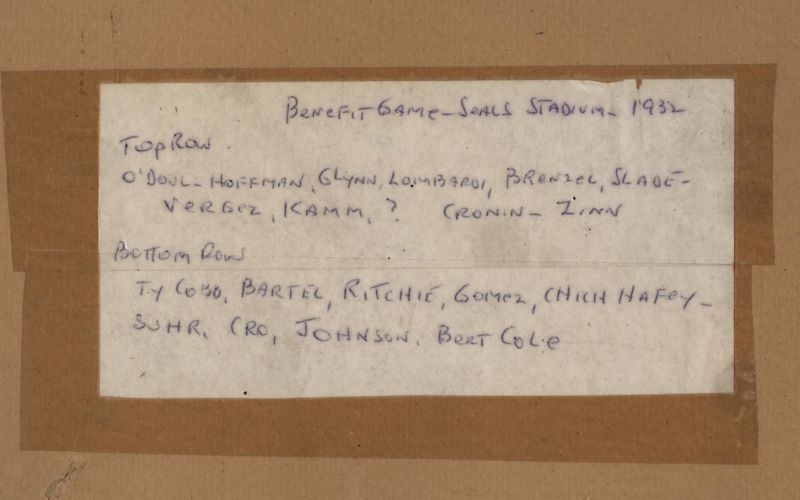 Benefit Game - Seals Stadium - 1932
Top Row.
O'Doul - Hoffman, Glynn, Lombardi, Brenzel, Slade -
Vergez, Kamm, ? Cronin - Zinn
Bottom Row
Ty Cobb, Bartel, Ritchie, Gomez, Chich Hafey -
Suhr, Cro, Johnson, Bert Cole